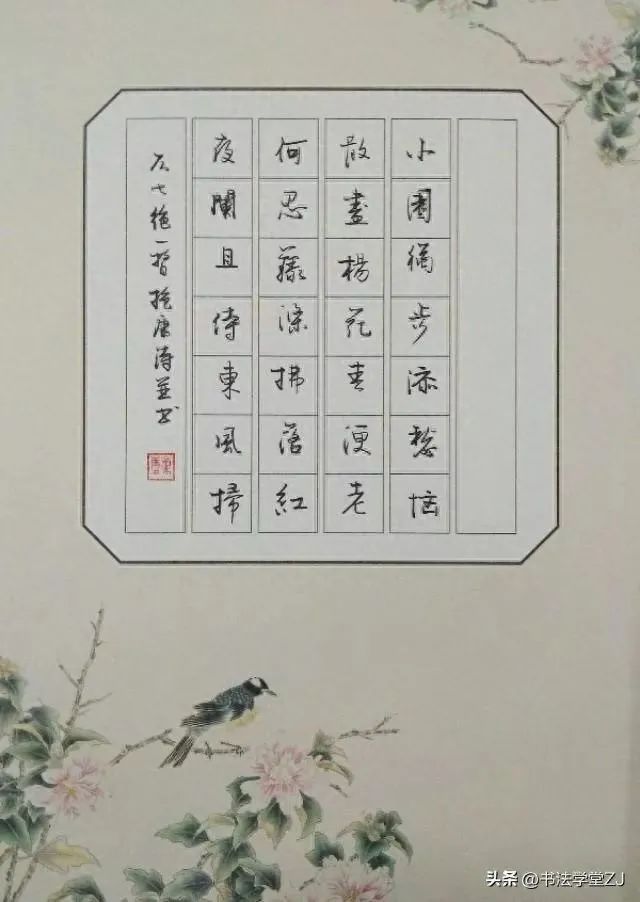 小園獨步添愁惱
散盡楊花春便老
何忍滌拂落紅
夜闌且待東風掃
仄七絕一首唐詩並書
头条 @书法学堂ZJ